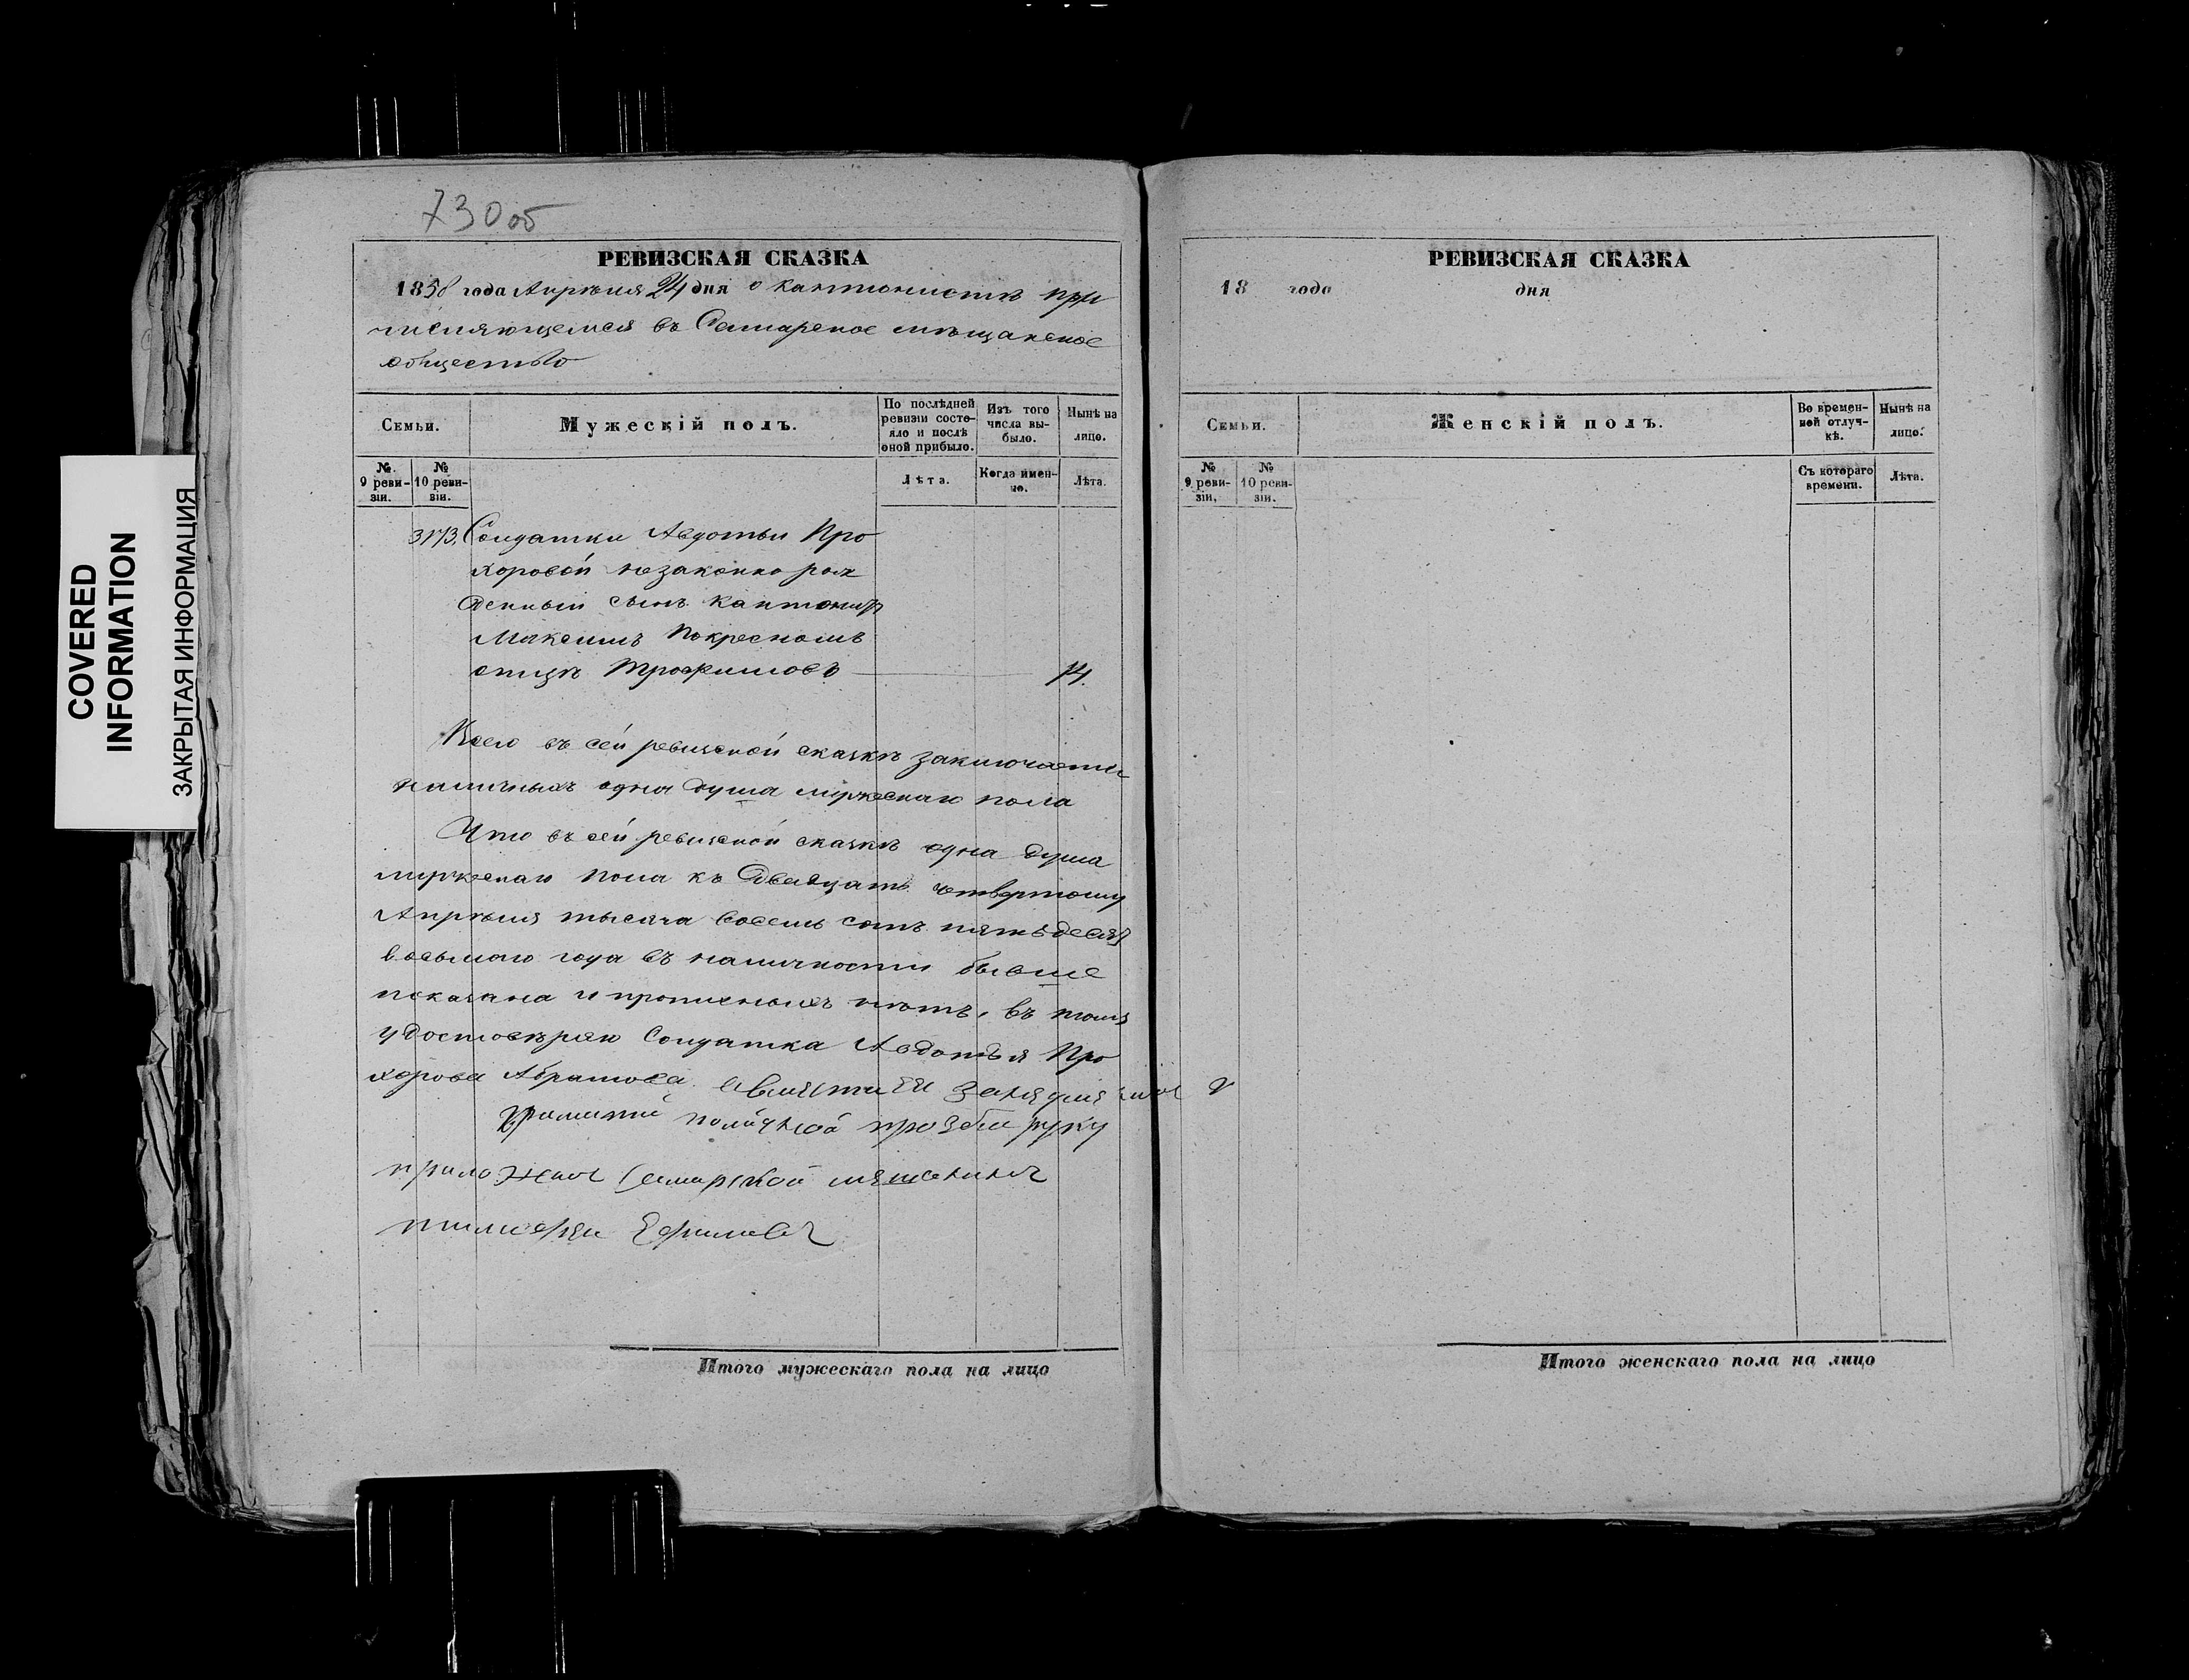 730об
РЕВИЗСКАЯ СКАЗКА
1858 года Апрѣля 24 дня о кантонистѣ при
числяющемся въ Самарское мѣщанское
общество
Семьи.
Мужескій полъ.
По послѣдней ревизіи состояло и послѣ оной прибыло.
Изъ того числа выбыло.
Нынѣ на лицо.
№ 9 ревизіи.
№ 10 ревизіи.
Лѣта.
Когда именно.
Лѣта.
3173. Солдатки Авдотьи Про
хоровой незаконно рож
денный сынъ кантонистъ
Максимъ по кресному
отцѣ Трофимовъ 14.
Всего въ сей ревизской сказкѣ заключается
наличныхъ одна душа мужескаго пола
Что въ сей ревизской сказкѣ одна душа
мужескаго пола къ двадцать четвертому
Апрѣля тысяча восемь сотъ пятьдесят
восьмого года въ наличности бывше
показана и прописныхъ нѣтъ, въ томъ
удостовѣряю Солдатка Авдотья Про
хорова Абрамова. а вместа ея
грамати поличной прозбы руку
приложилъ Самарской мещенинъ
тимофеи Ефимовъ
Итого мужескаго пола на лицо
РЕВИЗСКАЯ СКАЗКА
18 года дня
Семьи.
Женскій полъ.
Во временной отлучкѣ.
Нынѣ на лицо.
№ 9 ревизіи,
№ 10 ревизіи.
Съ котораго времени.
Лѣта.
Итого женскаго пола на лицо
COVERED
INFORMATION
ЗАКРЫТАЯ ИНФОРМАЦИЯ